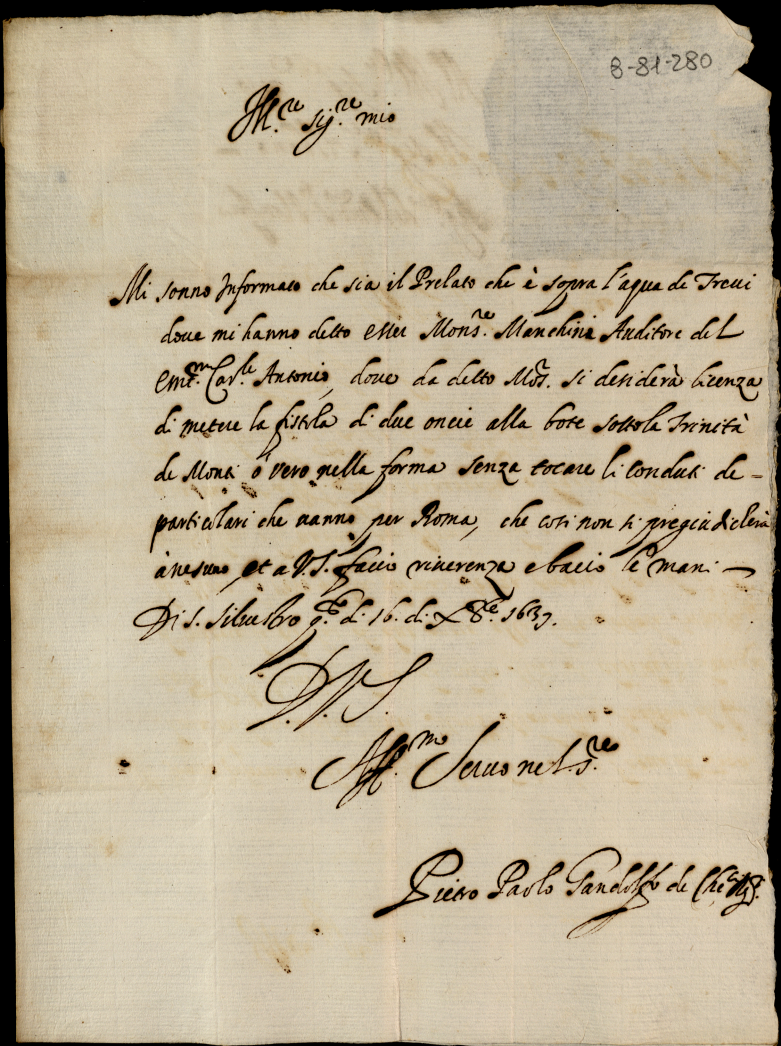 8-81-280
Ill.re sig.re mio
Mi sonno Informato che sia il Prelato che è sopra l'aqua de Treui
doue mi hanno detto esser Mons.re Manchini Auditore del
Em.mo Car.le Antonio, doue da detto Mos. si desidera licenza
di metere la fistola di due oncie alla bote sotto la Trinità
de Monti o vero nella forma senza tocare li conduti de-
particolari che uanno per Roma, che cosi non si pregiudicherà
à nesuno, et a V.S. faccio riuerenza e bacio le mani —
Di S. Siluestro q.to di 16. di X8.re 1637.
D.V.S.
Aff.mo Seruo nel S.re
Pietro Paolo Gandolfo de